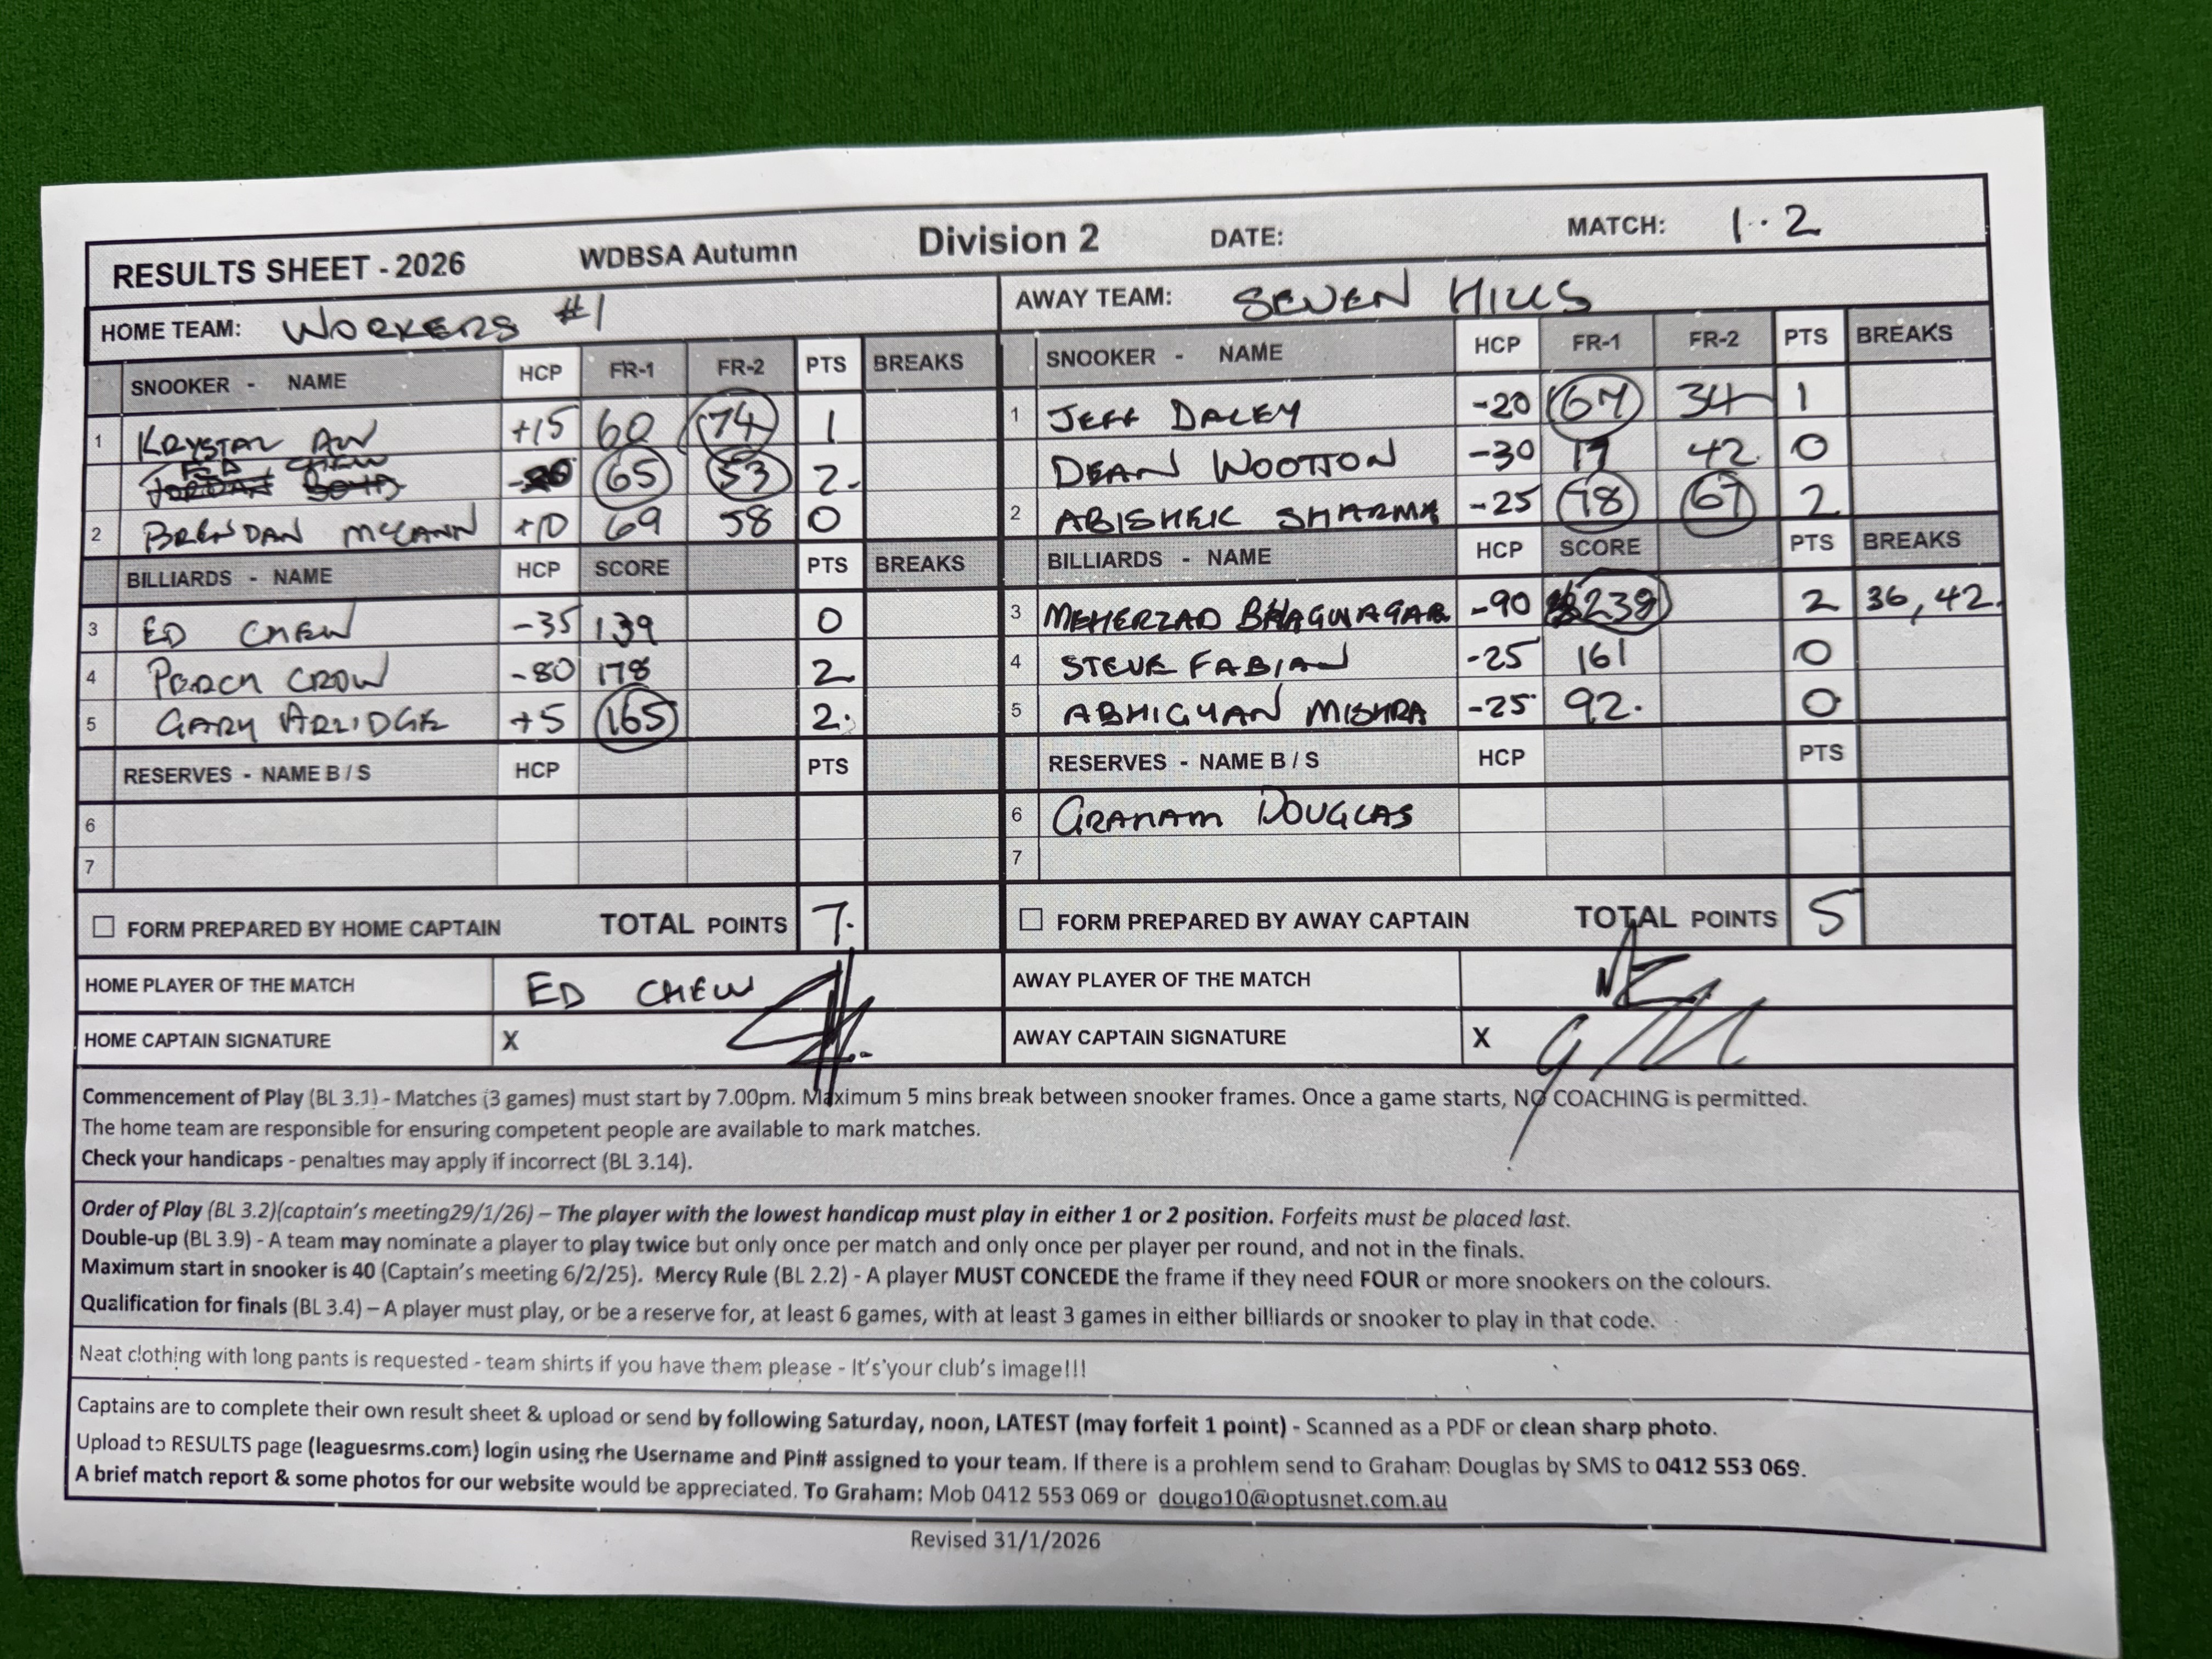 RESULTS SHEET - 2026 WDBSA Autumn Division 2 DATE: MATCH: 1..2
HOME TEAM: WORKERS #1 AWAY TEAM: SEVEN HILLS
SNOOKER - NAME HCP FR-1 FR-2 PTS BREAKS SNOOKER - NAME HCP FR-1 FR-2 PTS BREAKS
1 KRYSTAL AW +15 60 74 1 1 JEFF DALEY -20 67 34 1
ED CHEW 65 53 2. DEAN WOOTTON -30 42 0
2 BRENDAN MCCANN +10 69 58 0 2 ABISHEK SHARMA -25 67 2
BILLIARDS - NAME HCP SCORE PTS BREAKS BILLIARDS - NAME HCP SCORE PTS BREAKS
3 ED CHEW -35 139 0 3 MEHERZAD BHAGWAGAR -90 239 2 36, 42.
4 CROW -80 178 2 4 STEVE FABIAN -25 161 0
5 GARY ARLIDGE +5 165 2. 5 ABHIGYAN MISHRA -25 92. 0
RESERVES - NAME B / S HCP PTS RESERVES - NAME B / S HCP PTS
6 6 GRAHAM DOUGLAS
7 7
FORM PREPARED BY HOME CAPTAIN TOTAL POINTS 7. FORM PREPARED BY AWAY CAPTAIN TOTAL POINTS 5
HOME PLAYER OF THE MATCH ED CHEW AWAY PLAYER OF THE MATCH
HOME CAPTAIN SIGNATURE X AWAY CAPTAIN SIGNATURE X
Commencement of Play (BL 3.1) - Matches (3 games) must start by 7.00pm. Maximum 5 mins break between snooker frames. Once a game starts, NO COACHING is permitted.
The home team are responsible for ensuring competent people are available to mark matches.
Check your handicaps - penalties may apply if incorrect (BL 3.14).
Order of Play (BL 3.2)(captain's meeting29/1/26) – The player with the lowest handicap must play in either 1 or 2 position. Forfeits must be placed last.
Double-up (BL 3.9) - A team may nominate a player to play twice but only once per match and only once per player per round, and not in the finals.
Maximum start in snooker is 40 (Captain's meeting 6/2/25). Mercy Rule (BL 2.2) - A player MUST CONCEDE the frame if they need FOUR or more snookers on the colours.
Qualification for finals (BL 3.4) – A player must play, or be a reserve for, at least 6 games, with at least 3 games in either billiards or snooker to play in that code.
Neat clothing with long pants is requested - team shirts if you have them please - It's your club's image!!!
Captains are to complete their own result sheet & upload or send by following Saturday, noon, LATEST (may forfeit 1 point) - Scanned as a PDF or clean sharp photo.
Upload to RESULTS page (leaguesrms.com) login using the Username and Pin# assigned to your team. If there is a problem send to Graham Douglas by SMS to 0412 553 069.
A brief match report & some photos for our website would be appreciated. To Graham: Mob 0412 553 069 or dougo10@optusnet.com.au
Revised 31/1/2026